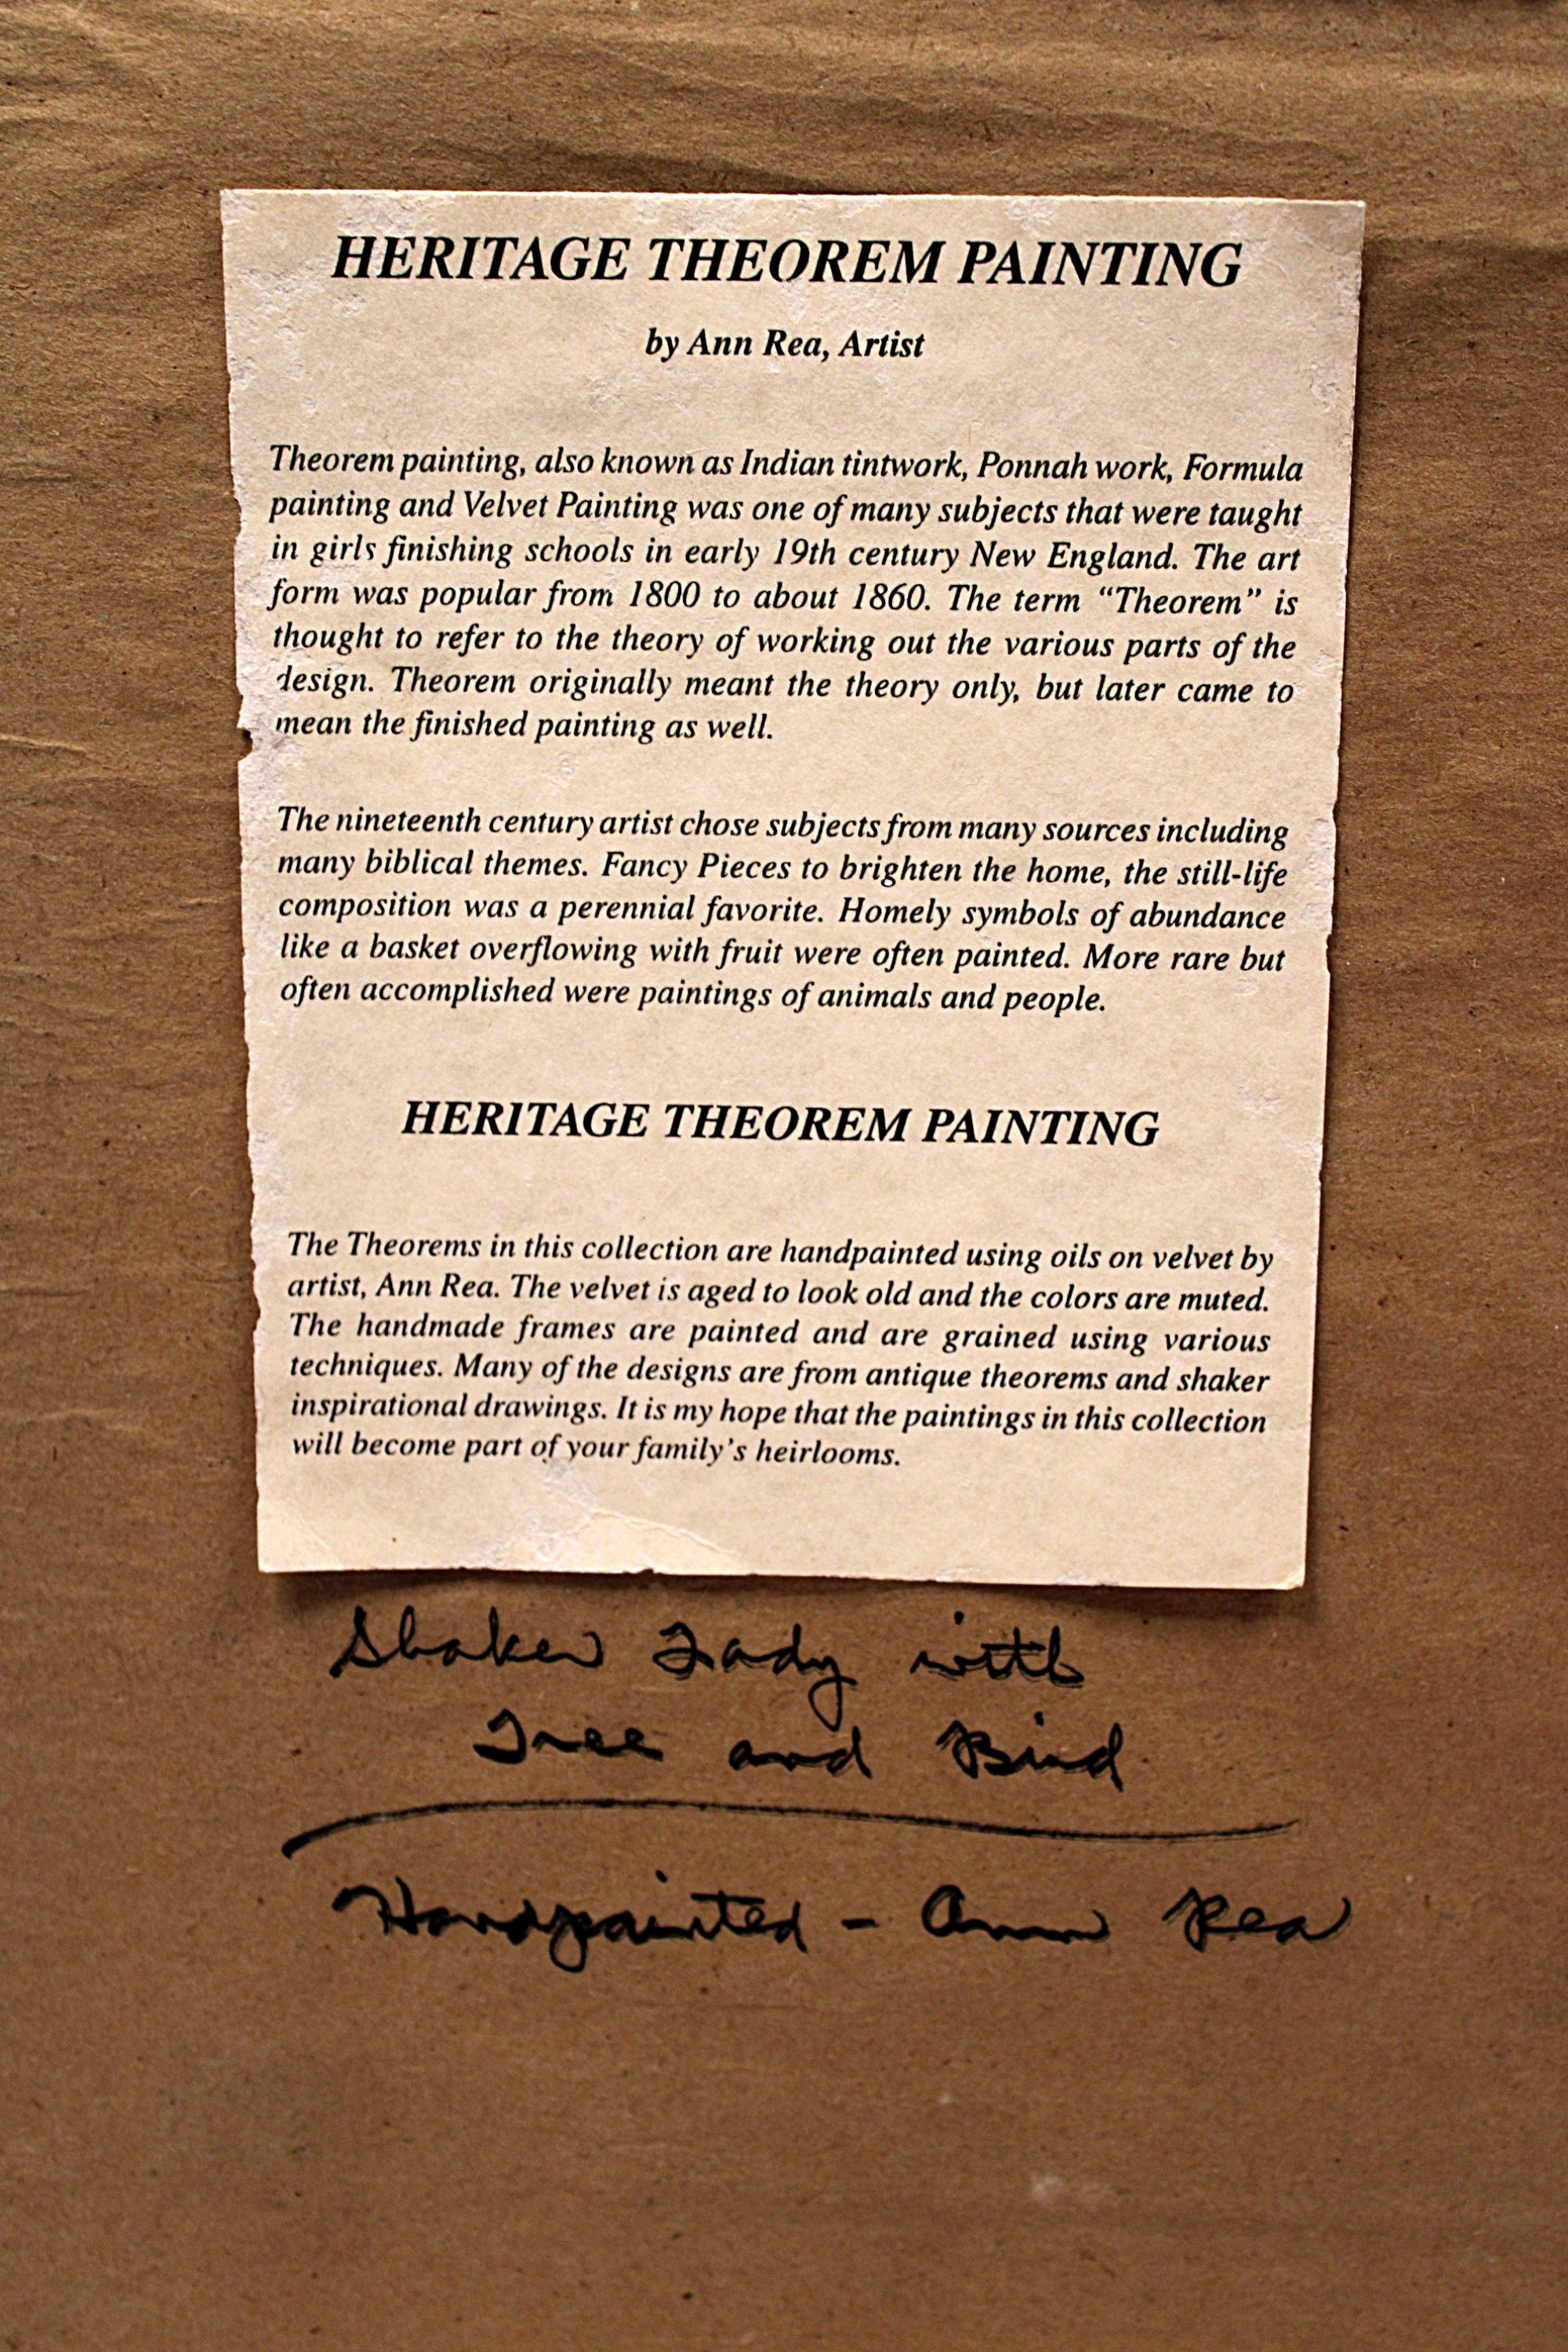 HERITAGE THEOREM PAINTING
by Ann Rea, Artist
Theorem painting, also known as Indian tintwork, Ponnah work, Formula
painting and Velvet Painting was one of many subjects that were taught
in girls finishing schools in early 19th century New England. The art
form was popular from 1800 to about 1860. The term “Theorem” is
thought to refer to the theory of working out the various parts of the
design. Theorem originally meant the theory only, but later came to
mean the finished painting as well.
The nineteenth century artist chose subjects from many sources including
many biblical themes. Fancy Pieces to brighten the home, the still-life
composition was a perennial favorite. Homely symbols of abundance
like a basket overflowing with fruit were often painted. More rare but
often accomplished were paintings of animals and people.
HERITAGE THEOREM PAINTING
The Theorems in this collection are handpainted using oils on velvet by
artist, Ann Rea. The velvet is aged to look old and the colors are muted.
The handmade frames are painted and are grained using various
techniques. Many of the designs are from antique theorems and shaker
inspirational drawings. It is my hope that the paintings in this collection
will become part of your family’s heirlooms.
Shaker Lady with
Tree and Bird
Handpainted - Ann Rea